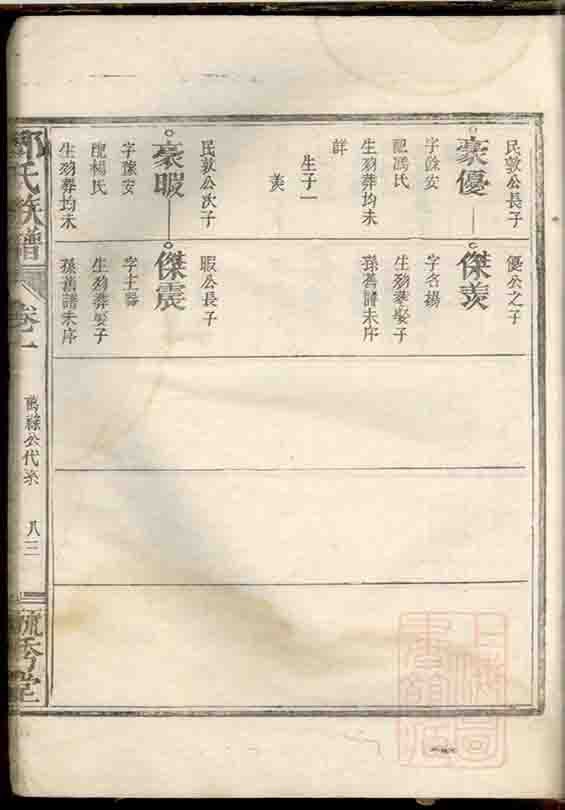 民敦公長子
豪優
字餘安
配馮氏
生殁葬均未
詳
生子一
羨
民敦公次子
豪暇
字豫安
配楊氏
生殁葬均未
優公之子
傑羨
字名揚
生殁葬娶子
孫舊譜未序
暇公長子
傑震
生殁葬娶子
孫舊譜未序
氏族譜
卷一
公代系
八三